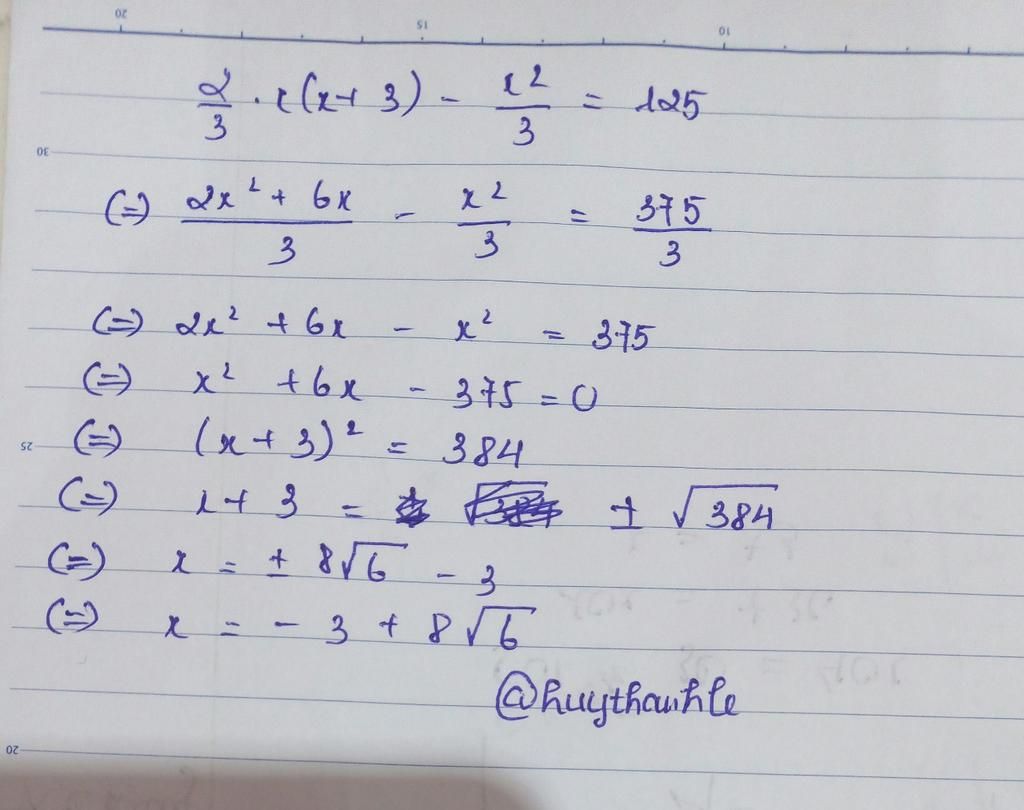 20 15 10
2/3 . x(x+3) - x²/3 = 125
30
(=) (2x² + 6x)/3 - x²/3 = 375/3
(=) 2x² + 6x - x² = 375
(=) x² + 6x - 375 = 0
25 (=) (x+3)² = 384
(=) x + 3 = ± √384
(=) x = ± 8√6 - 3
(=) x = - 3 + 8√6
@huythanhle
20